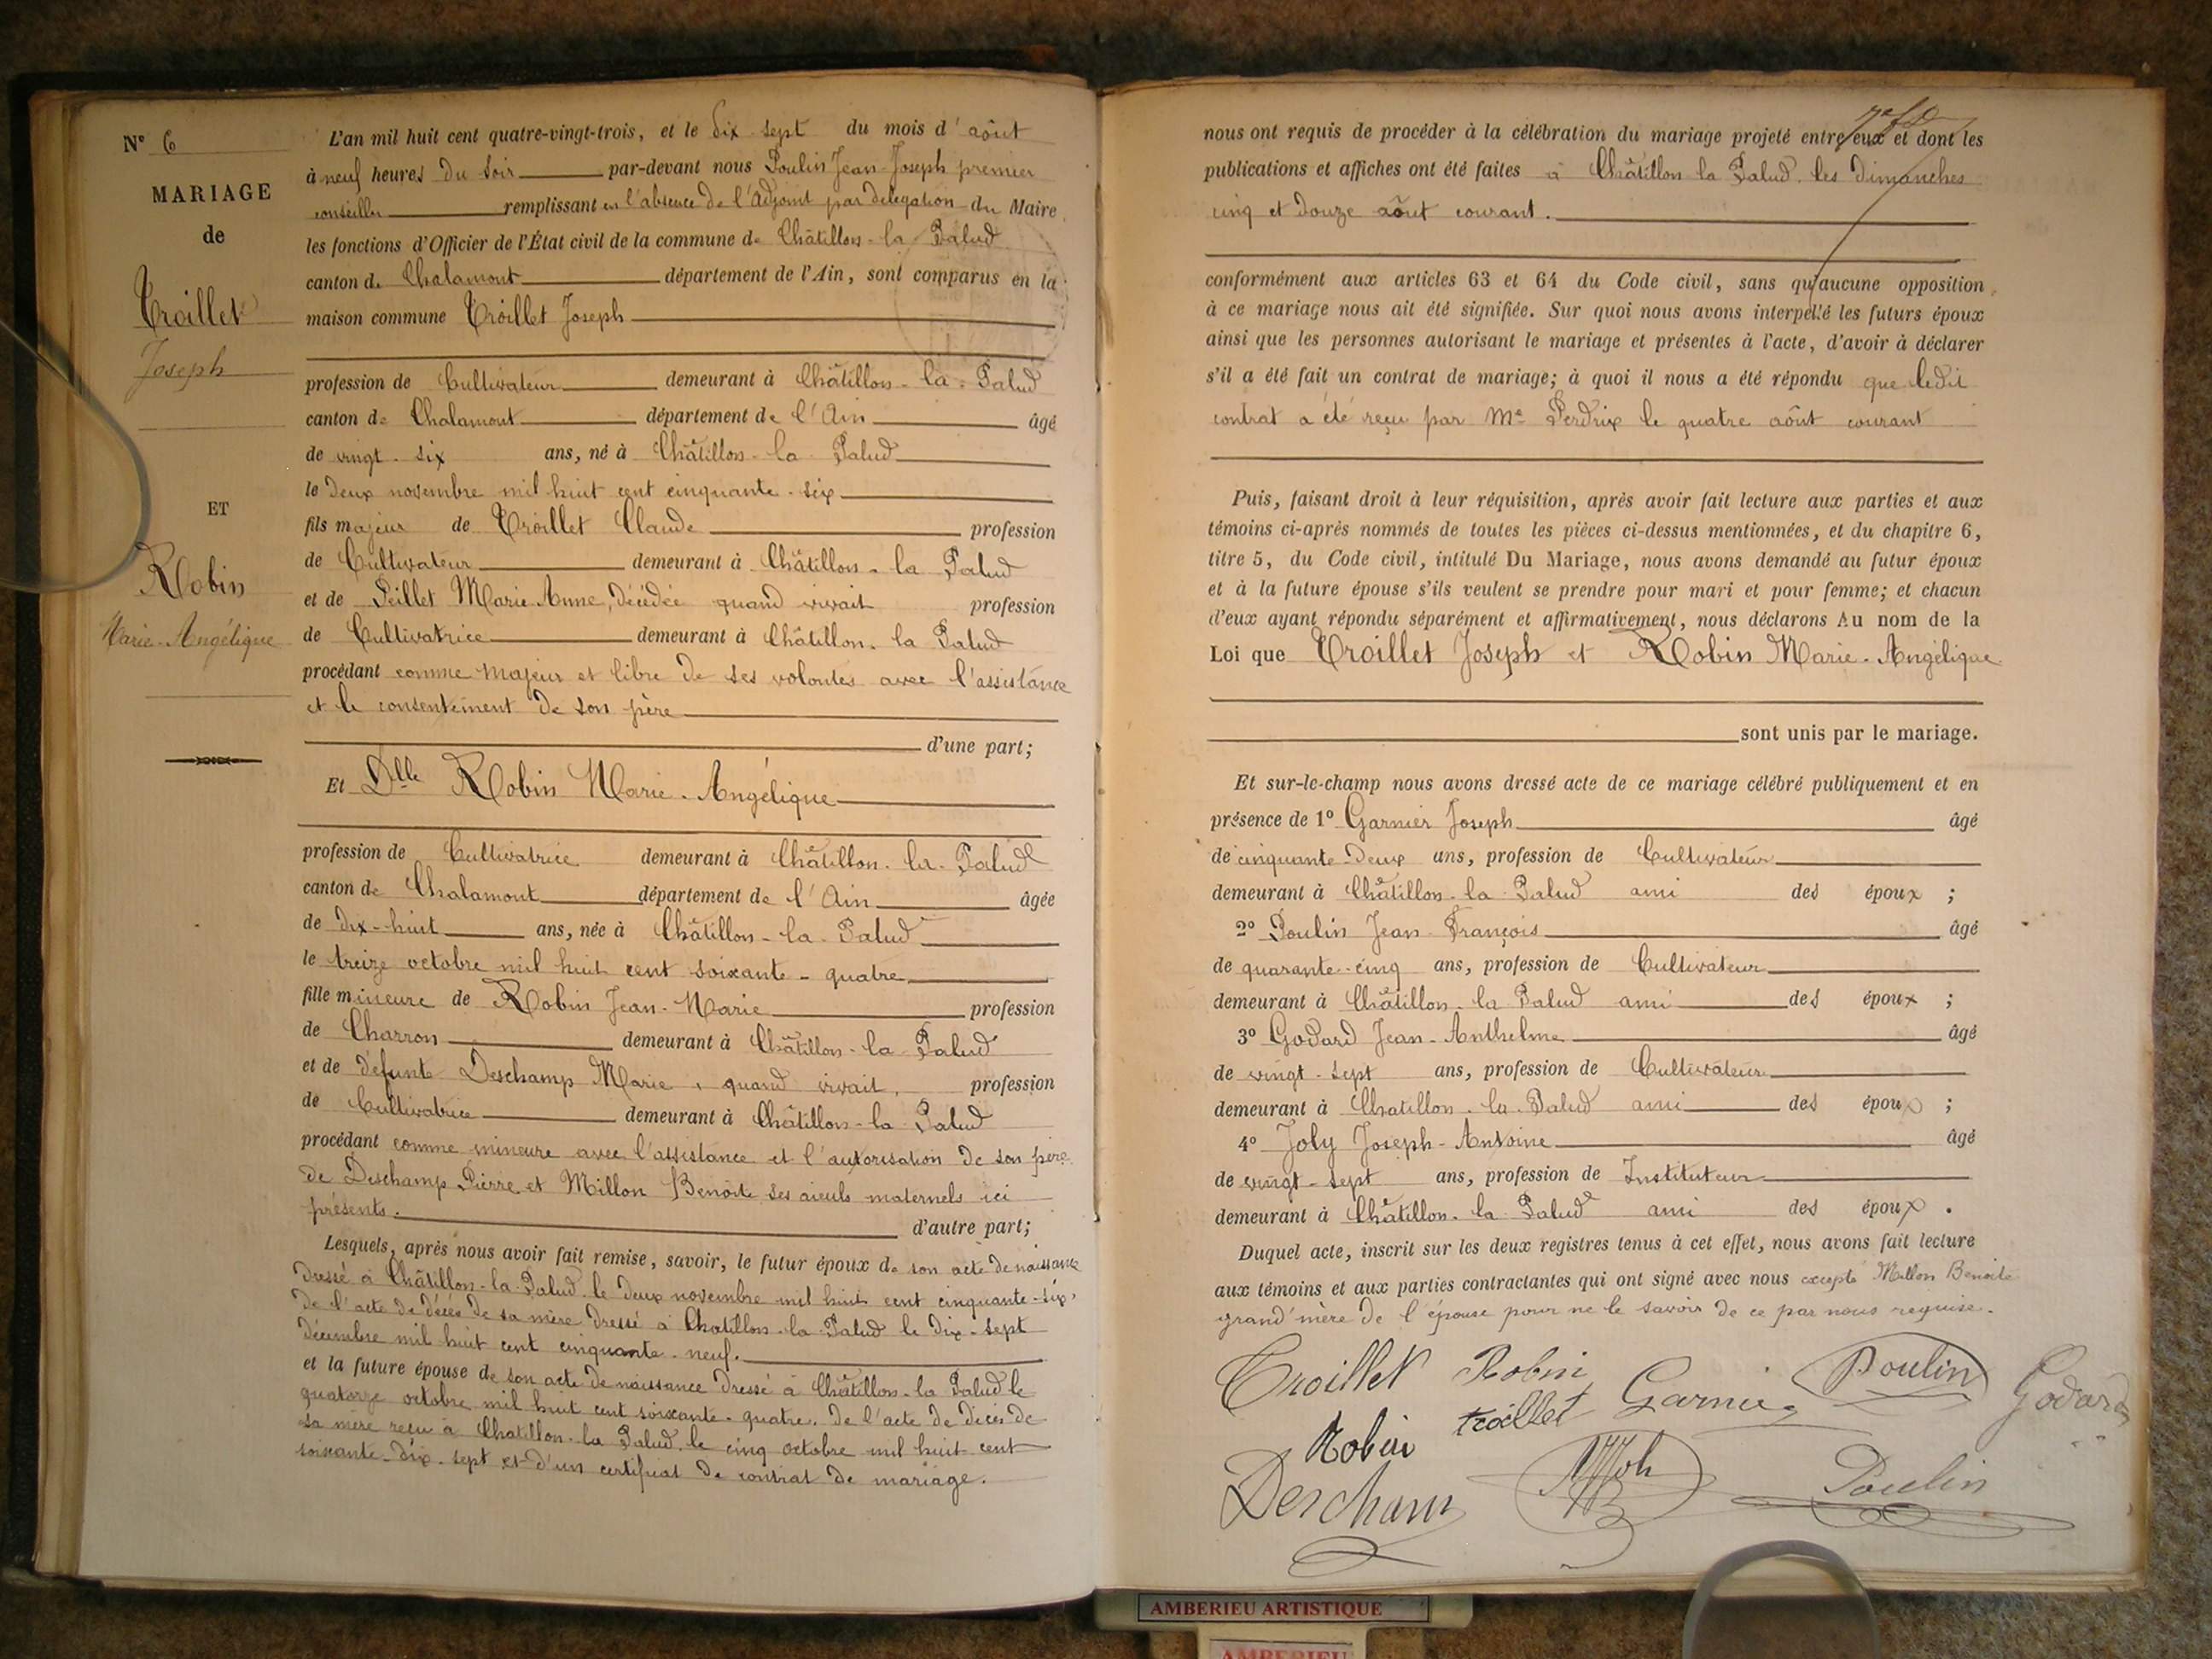 N° 6
MARIAGE
de
Troillet
Joseph
ET
Robin
Marie-Angélique
L'an mil huit cent quatre-vingt-trois, et le dix-sept du mois d'août
à neuf heures du soir par-devant nous Poulin Jean-Joseph premier
conseiller remplissant en l'absence de l'Adjoint par délégation du Maire
les fonctions d'Officier de l'État civil de la commune de Châtillon-la-Palud
canton de Chalamont département de l'Ain, sont comparus en la
maison commune Troillet Joseph
profession de Cultivateur demeurant à Châtillon-la-Palud
canton de Chalamont département de l'Ain âgé
de vingt-six ans, né à Châtillon-la-Palud
le deux novembre mil huit cent cinquante-six
fils majeur de Troillet Claude profession
de Cultivateur demeurant à Châtillon-la-Palud
et de Peillet Marie-Anne, décédée quand vivait profession
de Cultivatrice demeurant à Châtillon-la-Palud
procédant comme majeur et libre de ses volontés avec l'assistance
et le consentement de son père
d'une part;
Et Dlle Robin Marie-Angélique
profession de Cultivatrice demeurant à Châtillon-la-Palud
canton de Chalamont département de l'Ain âgée
de dix-huit ans, née à Châtillon-la-Palud
le treize octobre mil huit cent soixante-quatre
fille mineure de Robin Jean-Marie profession
de Charron demeurant à Châtillon-la-Palud
et de défunte Deschamp Marie, quand vivait, profession
de Cultivatrice demeurant à Châtillon-la-Palud
procédant comme mineure avec l'assistance et l'autorisation de son père
de Deschamp Pierre et Millon Benoite ses aieuls maternels ici
présents. d'autre part;
Lesquels, après nous avoir fait remise, savoir, le futur époux de son acte de naissance
dressé à Châtillon-la-Palud le deux novembre mil huit cent cinquante-six,
de l'acte de décès de sa mère dressé à Chatillon-la-Palud le dix-sept
décembre mil huit cent cinquante-neuf.
et la future épouse de son acte de naissance dressé à Châtillon-la-Palud le
quatorze octobre mil huit cent soixante-quatre. De l'acte de décès de
sa mère reçu à Chatillon-la-Palud, le cinq octobre mil huit cent
soixante-dix-sept et d'un certificat de contrat de mariage.
nous ont requis de procéder à la célébration du mariage projeté entre eux et dont les
publications et affiches ont été faites à Châtillon la Palud. les dimanches
cinq et douze août courant.
conformément aux articles 63 et 64 du Code civil, sans qu'aucune opposition
à ce mariage nous ait été signifiée. Sur quoi nous avons interpellé les futurs époux
ainsi que les personnes autorisant le mariage et présentes à l'acte, d'avoir à déclarer
s'il a été fait un contrat de mariage; à quoi il nous a été répondu que ledit
contrat a été reçu par Me Perdrix le quatre août courant
Puis, faisant droit à leur réquisition, après avoir fait lecture aux parties et aux
témoins ci-après nommés de toutes les pièces ci-dessus mentionnées, et du chapitre 6,
titre 5, du Code civil, intitulé Du Mariage, nous avons demandé au futur époux
et à la future épouse s'ils veulent se prendre pour mari et pour femme; et chacun
d'eux ayant répondu séparément et affirmativement, nous déclarons Au nom de la
Loi que Troillet Joseph et Robin Marie-Angélique
sont unis par le mariage.
Et sur-le-champ nous avons dressé acte de ce mariage célébré publiquement et en
présence de 1° Garnier Joseph âgé
de cinquante-deux ans, profession de Cultivateur
demeurant à Châtillon-la-Palud ami des époux ;
2° Poulin Jean-François âgé
de quarante-cinq ans, profession de Cultivateur
demeurant à Châtillon-la-Palud ami des époux ;
3° Godard Jean-Anthelme âgé
de vingt-sept ans, profession de Cultivateur
demeurant à Chatillon-la-Palud ami des époux ;
4° Joly Joseph-Antoine âgé
de vingt-sept ans, profession de Instituteur
demeurant à Châtillon-la-Palud ami des époux.
Duquel acte, inscrit sur les deux registres tenus à cet effet, nous avons fait lecture
aux témoins et aux parties contractantes qui ont signé avec nous excepté Millon Benoite
grand'mère de l'épouse pour ne le savoir de ce par nous requise.
Troillet Robin Garnier Poulin Godard
Robin troillet
Descham Poulin
AMBERIEU ARTISTIQUE
AMBERIEU